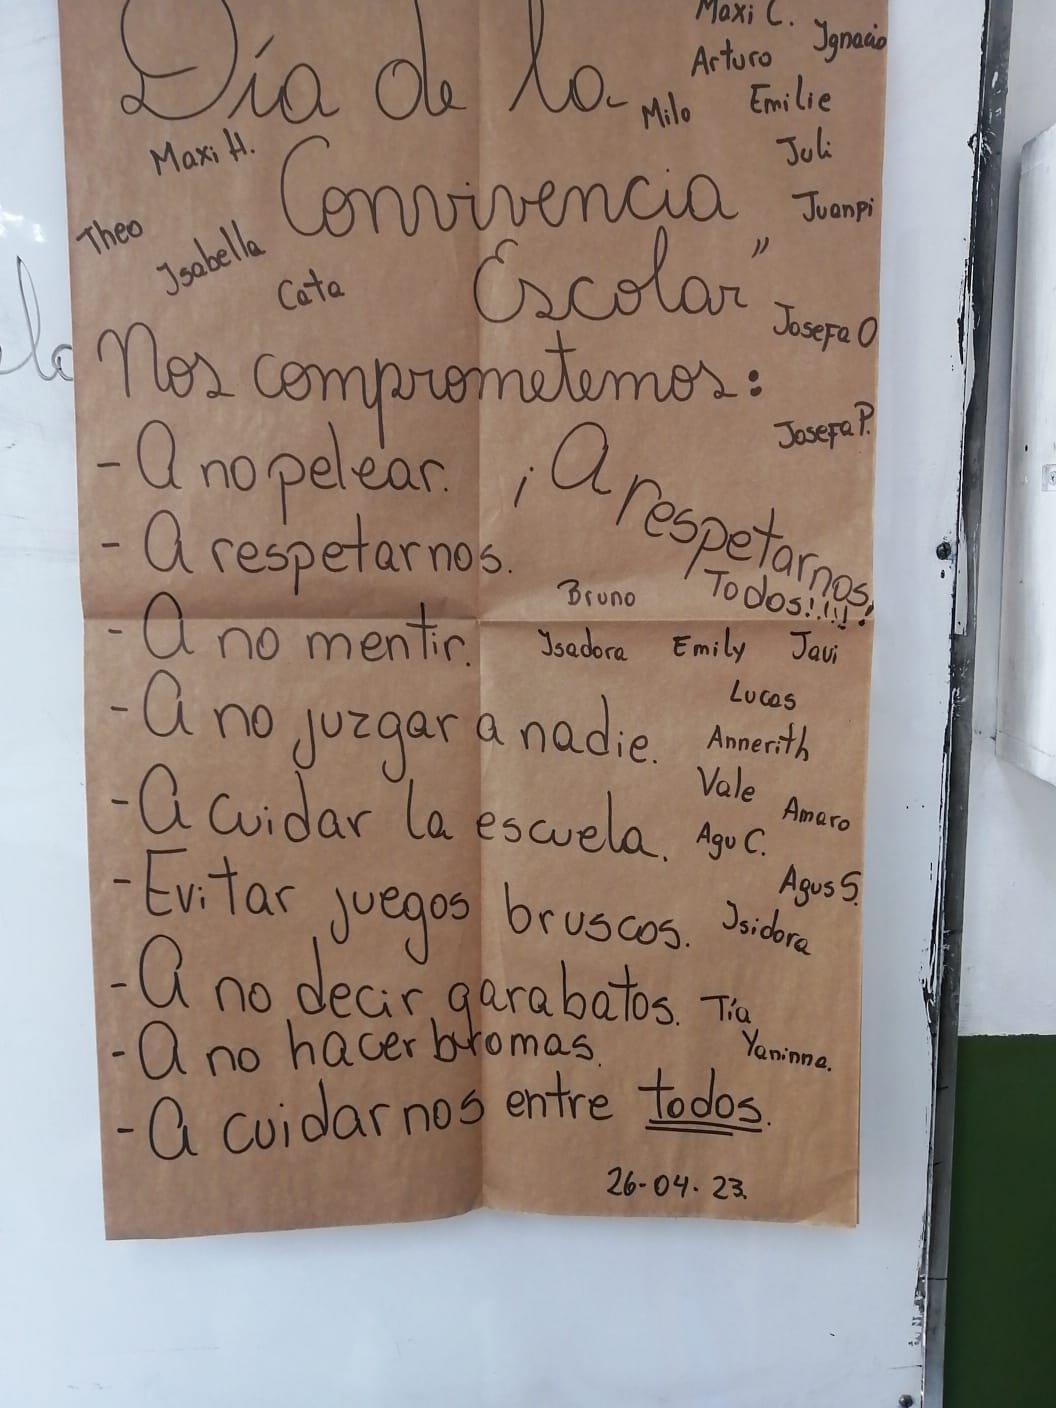 Maxi C.
Ignacio
Día de la
Arturo
Emilie
Milo
Maxi H.
Juli
Convivencia
Juanpi
Theo
Isabella
Cata
Escolar"
Josefa O
Nos comprometemos:
Josefa P.
- A no pelear.
¡A respetarnos
Todos!!!!!
- A respetarnos.
Bruno
- A no mentir.
Isadora Emily Javi
Lucas
- A no juzgar a nadie.
Annerith
Vale
Amaro
- A cuidar la escuela.
Agu C.
Agus S.
- Evitar juegos bruscos.
Isidora
- A no decir garabatos.
Tía
Yaninna.
- A no hacer bromas.
- A cuidarnos entre todos.
26-04-23.